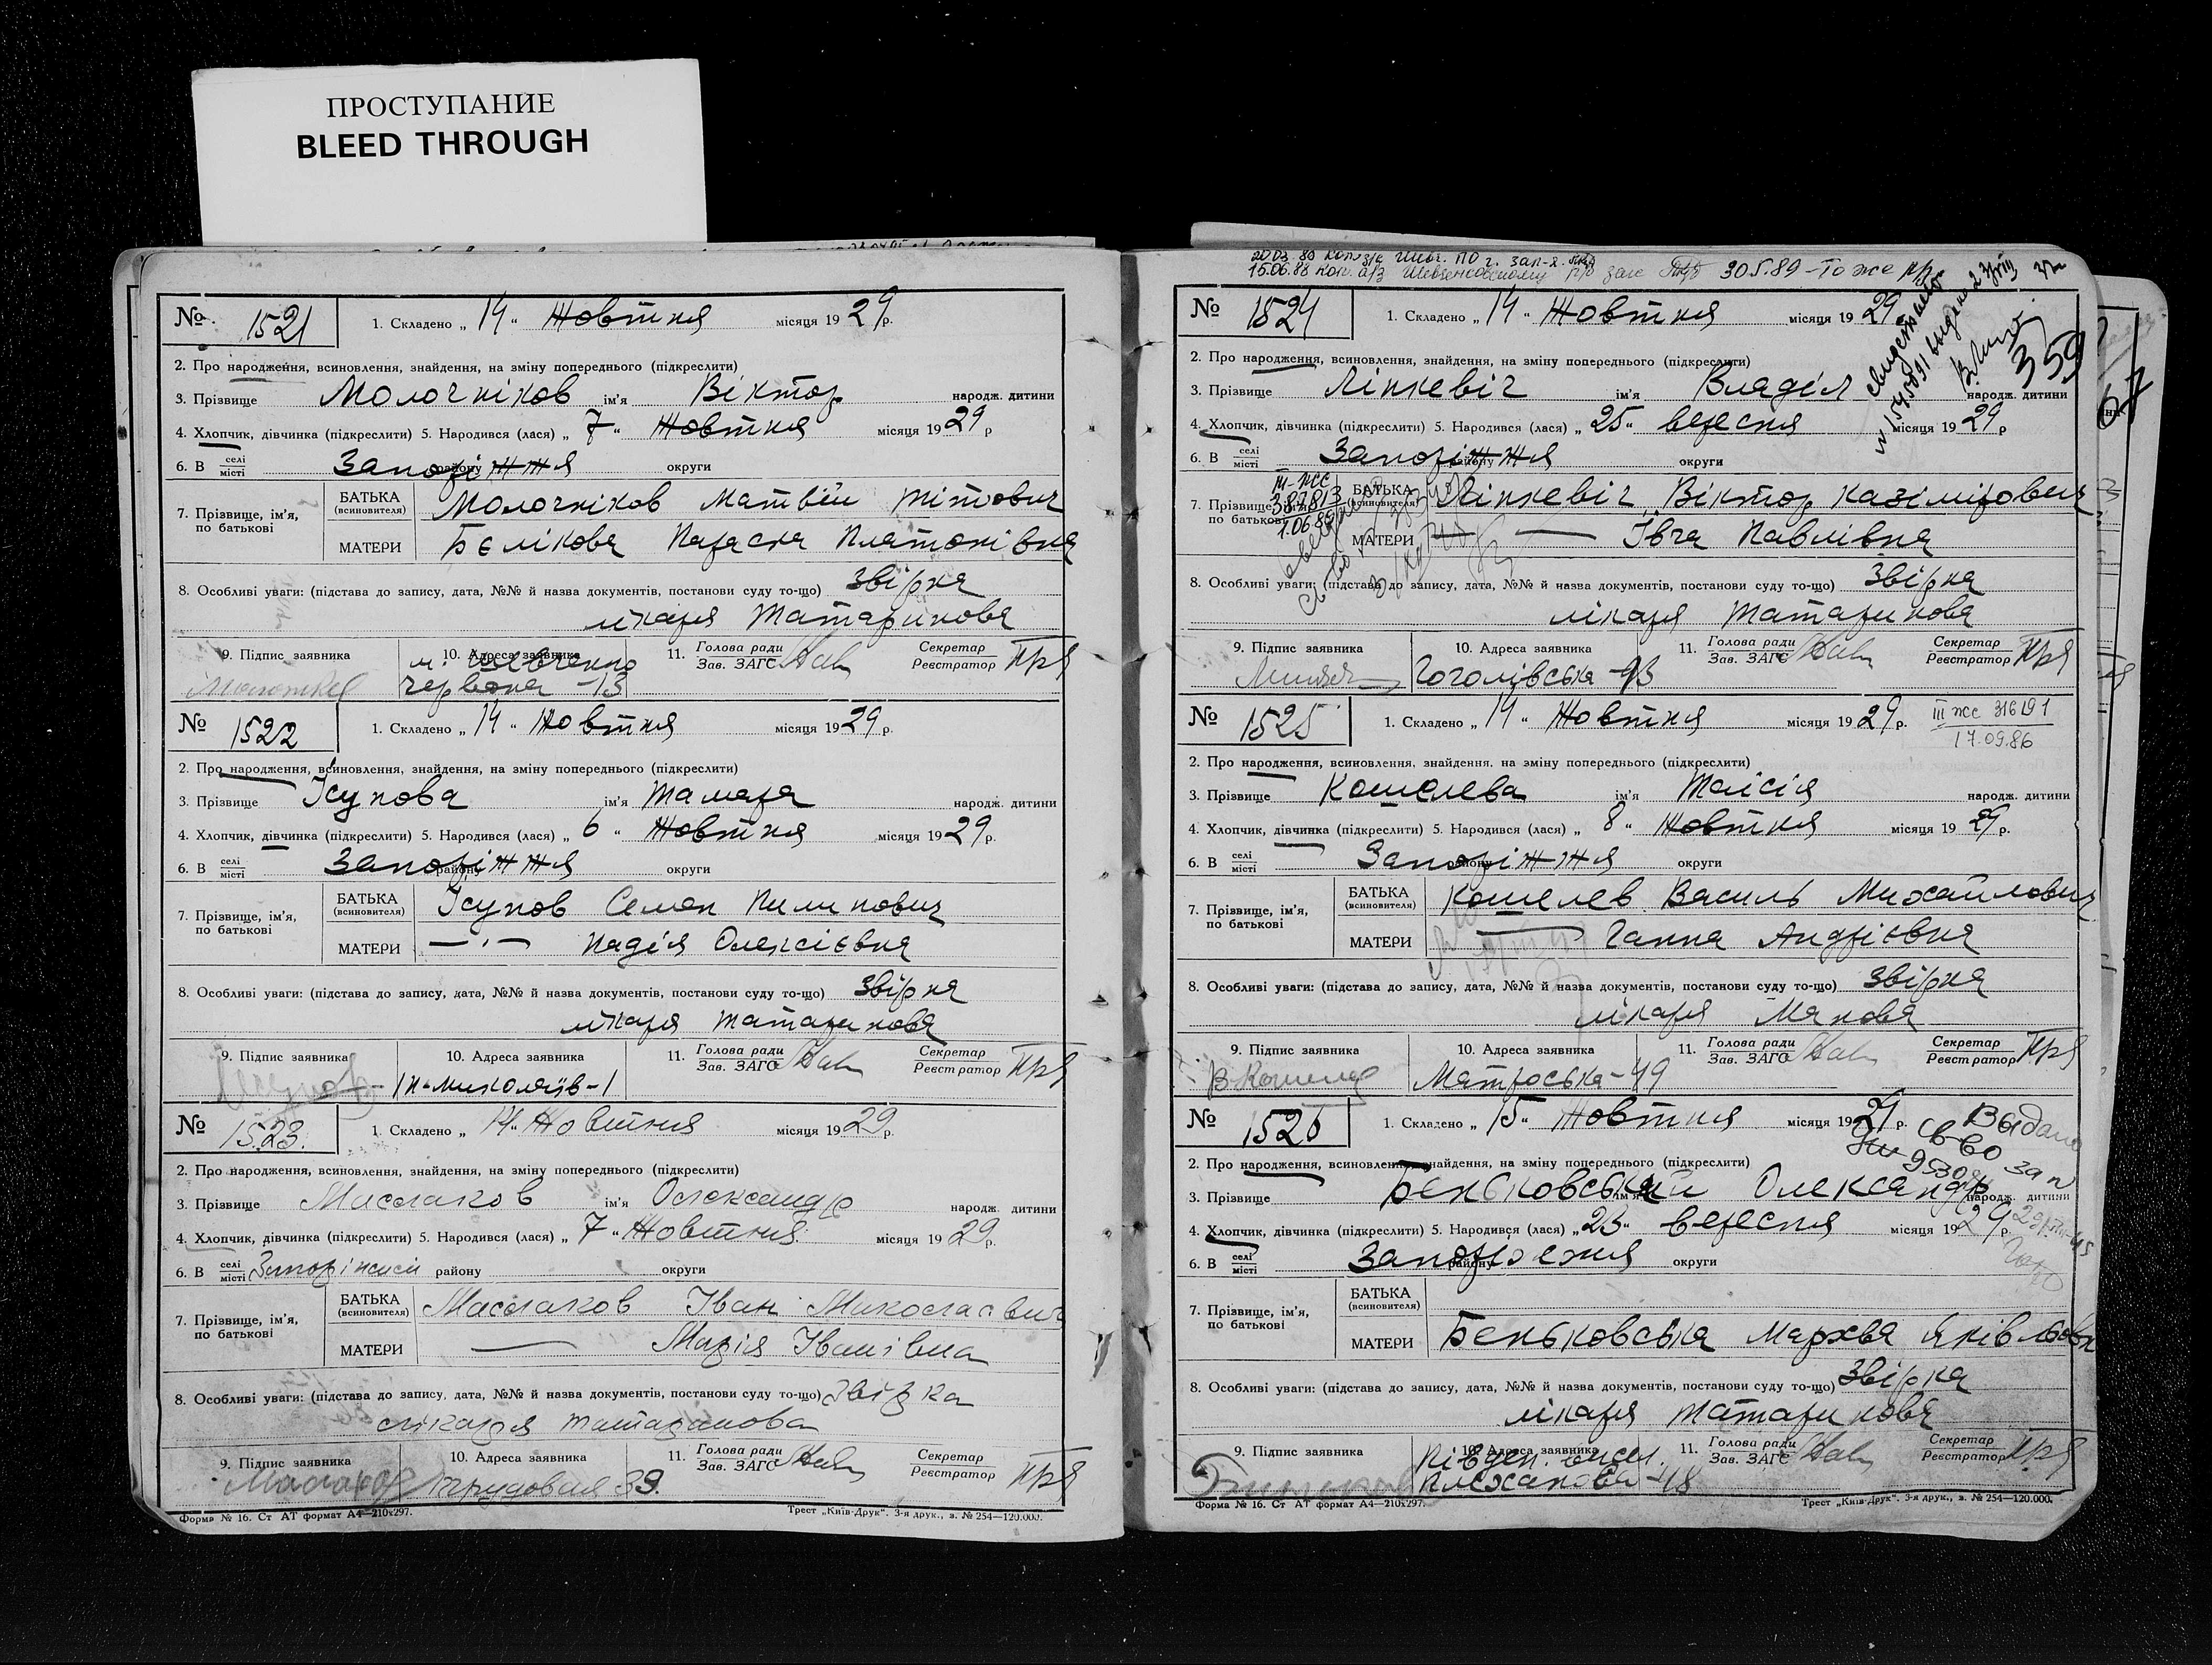 ПРОСТУПАНИЕ
BLEED THROUGH
№ 1521
1. Складено „ 14 " Жовтня місяця 1929 р.
2. Про народження, всиновлення, знайдення, на зміну попереднього (підкреслити)
3. Прізвище Молочніков ім'я Віктор народж. дитини
4. Хлопчик, дівчинка (підкреслити) 5. Народився (лася) „ 7 " Жовтня місяця 1929 р
6. В селі місті Запоріжжя району округи
7. Прізвище, ім'я, по батькові
БАТЬКА (всиновителя) Молочніков Матвій Тітович
МАТЕРИ Бєлікова Параска Платонівна
8. Особливі уваги: (підстава до запису, дата, №№ й назва документів, постанови суду то-що) Звірка
лікаря Татаринова
9. Підпис заявника
10. Адреса заявника м. Шевченко
Червона -13
11. Голова ради Зав. ЗАГС
Секретар Реєстратор
№ 1522
1. Складено „ 14 " Жовтня місяця 1929 р.
2. Про народження, всиновлення, знайдення, на зміну попереднього (підкреслити)
3. Прізвище Ісупова ім'я Тамара народж. дитини
4. Хлопчик, дівчинка (підкреслити) 5. Народився (лася) „ 6 " Жовтня місяця 1929 р.
6. В селі місті Запоріжжя району округи
7. Прізвище, ім'я, по батькові
БАТЬКА (всиновителя) Ісупов Семен Пилипович
МАТЕРИ —"— Надія Олексієвна
8. Особливі уваги: (підстава до запису, дата, №№ й назва документів, постанови суду то-що) Звірка
лікаря Татаринова
9. Підпис заявника
10. Адреса заявника
11. Голова ради Зав. ЗАГС
Секретар Реєстратор
№ 1523.
1. Складено „ 14 " Жовтня місяця 1929 р.
2. Про народження, всиновлення, знайдення, на зміну попереднього (підкреслити)
3. Прізвище Маслаков ім'я Олександр народж. дитини
4. Хлопчик, дівчинка (підкреслити) 5. Народився (лася) „ 7 " Жовтня місяця 1929 р.
6. В селі місті району округи
7. Прізвище, ім'я, по батькові
БАТЬКА (всиновителя) Маслаков Іван Миколаєвич
МАТЕРИ — Марія Іванівна
8. Особливі уваги: (підстава до запису, дата, №№ й назва документів, постанови суду то-що) Звірка
лікаря Татаринова
9. Підпис заявника
10. Адреса заявника Трудовая 39.
11. Голова ради Зав. ЗАГС
Секретар Реєстратор
Форма № 16. Ст АТ формат А4—210х297.
Трест „Київ-Друк". 3-я друк., з. № 254—120.000.
30.5.89 - То же
№ 1524
1. Складено „ 14 " Жовтня місяця 1929 р.
2. Про народження, всиновлення, знайдення, на зміну попереднього (підкреслити)
359
3. Прізвище Ліпкевіч ім'я Владіл народж. дитини
4. Хлопчик, дівчинка (підкреслити) 5. Народився (лася) „ 25 " вересня місяця 1929 р
6. В селі місті Запоріжжя району округи
7. Прізвище, ім'я, по батькові
БАТЬКА (всиновителя) Ліпкевіч Віктор Казімірович
МАТЕРИ — Івга Павлівна
8. Особливі уваги: (підстава до запису, дата, №№ й назва документів, постанови суду то-що) Звірка
лікаря Татаринова
9. Підпис заявника
10. Адреса заявника
Гоголівська -93
11. Голова ради Зав. ЗАГС
Секретар Реєстратор
№ 1525
1. Складено „ 14 " Жовтня місяця 1929 р.
III жс 316191
17.09.86
2. Про народження, всиновлення, знайдення, на зміну попереднього (підкреслити)
3. Прізвище Кошелева ім'я Таісія народж. дитини
4. Хлопчик, дівчинка (підкреслити) 5. Народився (лася) „ 8 " Жовтня місяця 1929 р.
6. В селі місті Запоріжжя району округи
7. Прізвище, ім'я, по батькові
БАТЬКА (всиновителя) Кошелев Василь Михайлович
МАТЕРИ — Ганна Андрієвна
8. Особливі уваги: (підстава до запису, дата, №№ й назва документів, постанови суду то-що) Звірка
лікаря Манова
9. Підпис заявника
10. Адреса заявника
Матроська -49
11. Голова ради Зав. ЗАГС
Секретар Реєстратор
№ 1526
1. Складено „ 15 " Жовтня місяця 1929 р.
2. Про народження, всиновлення, знайдення, на зміну попереднього (підкреслити)
3. Прізвище Беньковський ім'я Олександр народж. дитини
4. Хлопчик, дівчинка (підкреслити) 5. Народився (лася) „ 23 " вересня місяця 1929 р.
6. В селі місті району округи
7. Прізвище, ім'я, по батькові
БАТЬКА (всиновителя)
МАТЕРИ Беньковська Мархва Яківловна
8. Особливі уваги: (підстава до запису, дата, №№ й назва документів, постанови суду то-що) Звірка
лікаря Татаринова
9. Підпис заявника
10. Адреса заявника
Плеханова -48
11. Голова ради Зав. ЗАГС
Секретар Реєстратор
Форма № 16. Ст АТ формат А4—210х297.
Трест „Київ-Друк". 3-я друк., з. № 254—120.000.